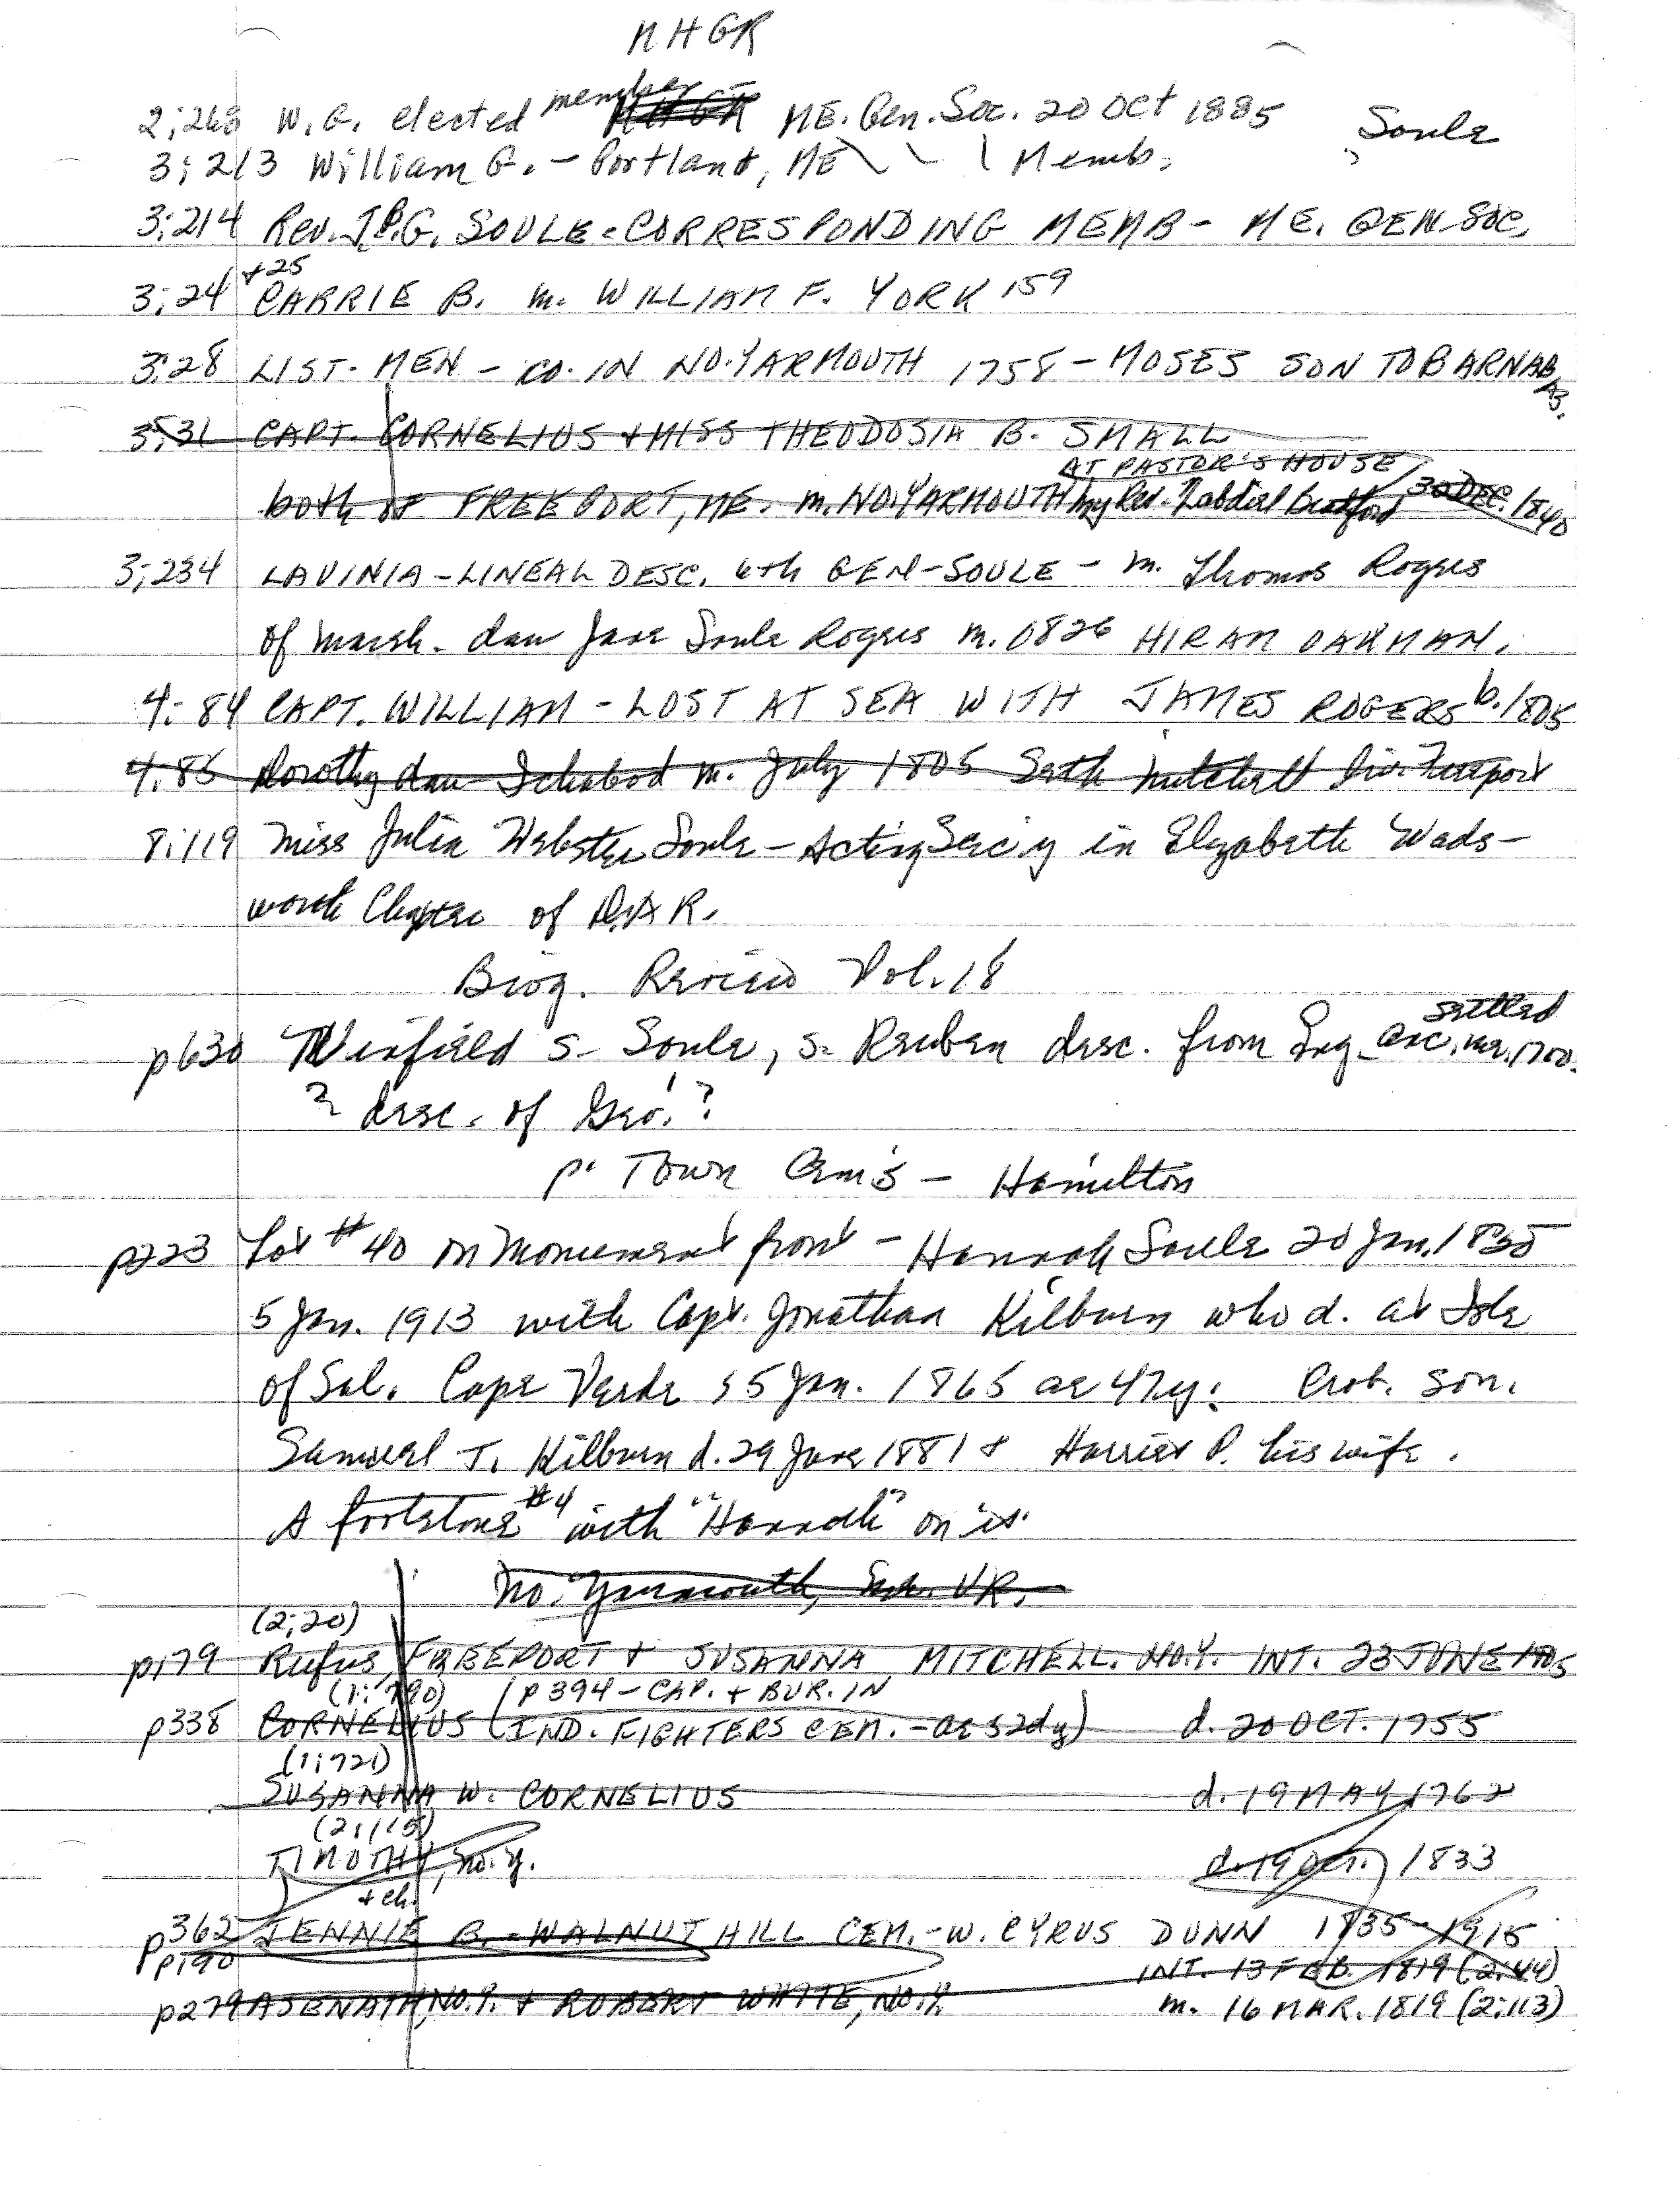 MHGR
2:268 W.G. elected member ME. Gen. Soc. 20 Oct 1885 Soule
3:213 William G. - Portland, ME \ \ \ Memb.
3:214 Rev. J.B.G. SOULE - CORRESPONDING MEMB - ME. GEN SOC.
3:24 +25 CARRIE B. m. WILLIAM F. YORK 159
3:28 LIST. MEN - CO. IN NO. YARMOUTH 1758 - MOSES SON TO BARNABAS.
3:31 CAPT. CORNELIUS + MISS THEODOSIA B. SMALL
AT PASTOR'S HOUSE
both of FREEPORT, ME. m. NO. YARMOUTH by Rev. Zabdiel Bradford 30 DEC. 1840
3:234 LAVINIA - LINEAL DESC. 6th GEN - SOULE - m. Thomas Rogers
of Marsh. dau Jane Soule Rogers m. 1826 HIRAM OAKMAN.
4:84 CAPT. WILLIAM - LOST AT SEA WITH JAMES ROGERS b. 1805
4:85 Dorothy dau Ichabod m. July 1805 Seth Mitchell liv. Freeport
8:119 Miss Julia Webster Soule - Acting Sec'y in Elizabeth Wads-
worth Chapter of D.A.R.
Biog. Review Vol. 18
settled
p630 Winfield S. Soule, s. Reuben desc. from Eng. anc. me. 1700.
? desc. of Geo.?
p. Town Cem's - Hamilton
p223 Lot #40 on monument front - Hannah Soule 20 Jan. 1835
5 Jan. 1913 with Capt. Jonathan Kilburn who d. at Isle
of Sal. Cape Verde 15 Jan. 1865 ae 47y. Prob. son.
Samuel T. Kilburn d. 29 June 1881 + Harriet P. his wife.
A footstone #4 with "Hannah" on it.
No. Yarmouth, VR.
(2:20)
p179 Rufus, FREEPORT + SUSANNA MITCHELL. NO.Y. INT. 23 JUNE 1805
(1:790) (P394 - CAP. + BUR. IN
p338 CORNELIUS (IND. FIGHTERS CEM. - ae 52dy) d. 20 OCT. 1755
(1:721)
SUSANNA W. CORNELIUS d. 19 MAY 1762
(2:115)
TIMOTHY, no. y. d. 19 Oct. 1833
+ ch.
p362 JENNIE B. - WALNUT HILL CEM. - W. CYRUS DUNN 1835-1915
p190 INT. 13 FEB. 1819 (2:44)
p279 ASENATH, NO.Y. + ROBERT WHITE, NO.Y. m. 16 MAR. 1819 (2:113)